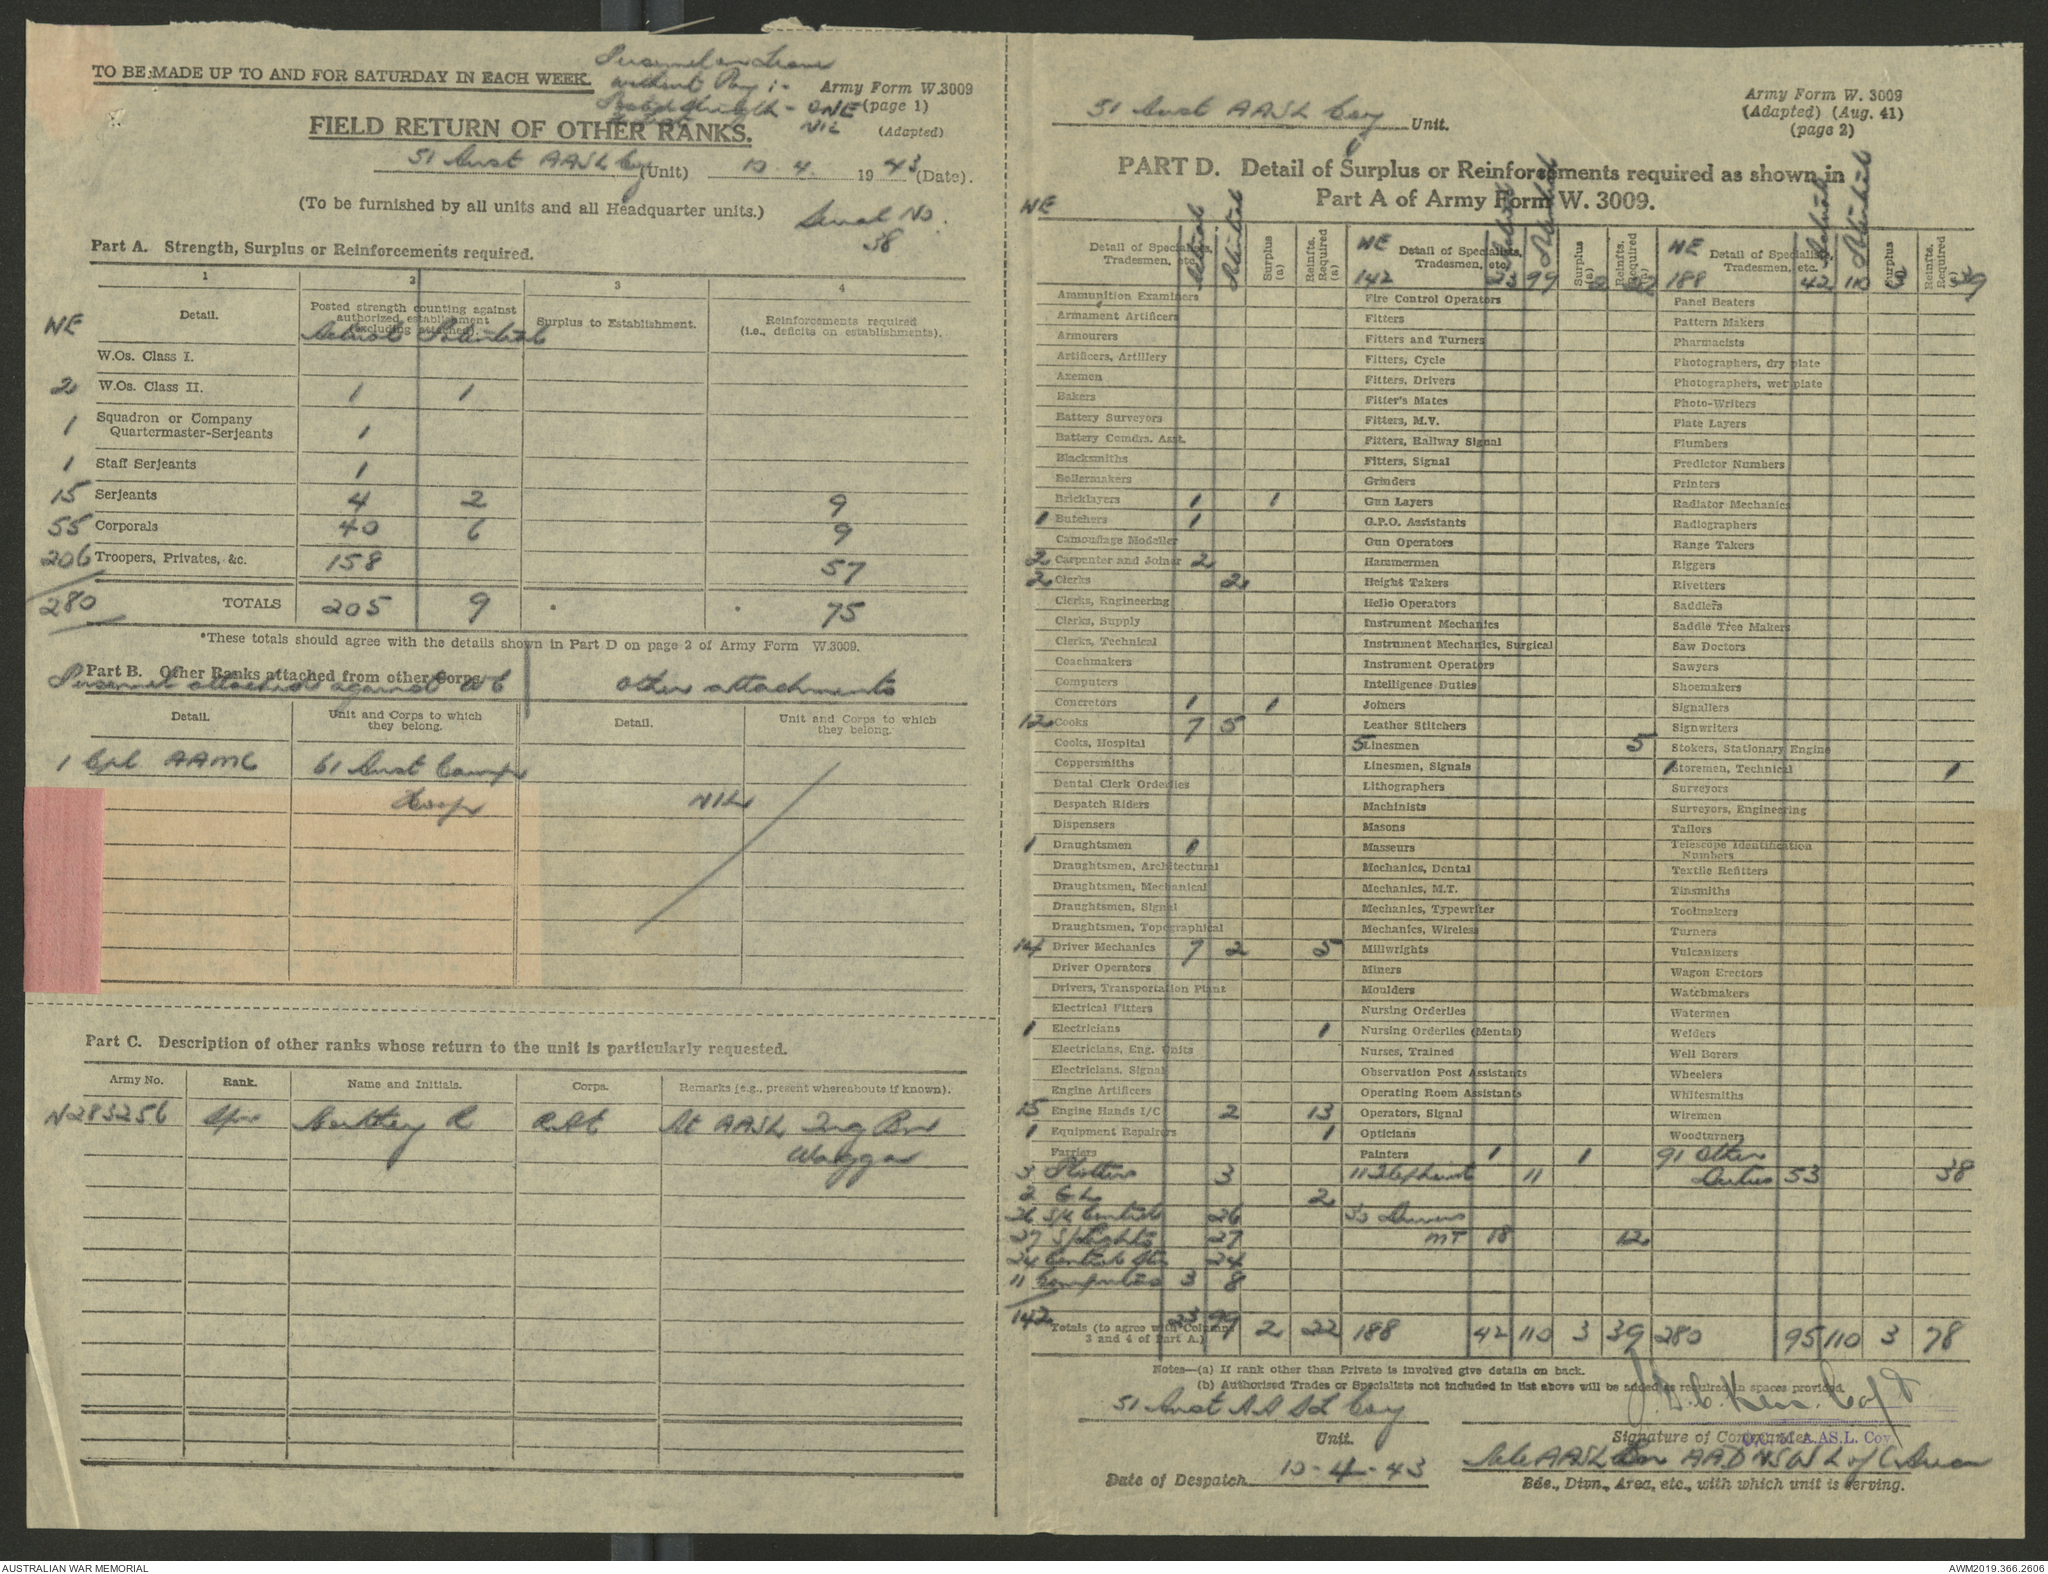 TO BE MADE UP TO AND FOR SATURDAY IN EACH WEEK.
Personnel on Leave
without Pay :-
Posted strength - ONE
NIL
Army Form W.3009
(page 1)
(Adapted)
FIELD RETURN OF OTHER RANKS.
51 Aust AASL Coy (Unit) 10 . 4 . 1943 (Date).
(To be furnished by all units and all Headquarter units.)
Serial No.
38
Part A. Strength, Surplus or Reinforcements required.
1 2 3 4
WE Detail. Posted strength counting against authorized establishment (excluding attached). Surplus to Establishment. Reinforcements required (i.e., deficits on establishments).
Actual Potential
W.Os. Class I.
2 W.Os. Class II. 1 1
1 Squadron or Company Quartermaster-Serjeants 1
1 Staff Serjeants 1
15 Serjeants 4 2 9
55 Corporals 40 6 9
206 Troopers, Privates, &c. 158 57
280 TOTALS 205 9 75
*These totals should agree with the details shown in Part D on page 2 of Army Form W.3009.
Part B. Other Ranks attached from other Corps.
Personnel attached against WE other attachments
Detail. Unit and Corps to which they belong. Detail. Unit and Corps to which they belong.
1 Cpl AAMC 61 Aust Camp
Hosp NIL
Part C. Description of other ranks whose return to the unit is particularly requested.
Army No. Rank. Name and Initials. Corps. Remarks (e.g., present whereabouts if known).
N283256 Spr R RAE At AASL Trg Bn
Wagga
51 Aust AASL Coy Unit.
Army Form W. 3009
(Adapted) (Aug. 41)
(page 2)
PART D. Detail of Surplus or Reinforcements required as shown in
Part A of Army Form W. 3009.
WE Detail of Specialists, Tradesmen, etc. Actual Potential Surplus (a) Reinfts. Required (a)
Ammunition Examiners
Armament Artificers
Armourers
Artificers, Artillery
Axemen
Bakers
Battery Surveyors
Battery Comdrs. Asst.
Blacksmiths
Boilermakers
Bricklayers 1 1
1 Butchers 1
Camouflage Modeller
2 Carpenter and Joiner 2
2 Clerks 2
Clerks, Engineering
Clerks, Supply
Clerks, Technical
Coachmakers
Computers
Concretors 1 1
12 Cooks 7 5
Cooks, Hospital
Coppersmiths
Dental Clerk Orderlies
Despatch Riders
Dispensers
1 Draughtsmen 1
Draughtsmen, Architectural
Draughtsmen, Mechanical
Draughtsmen, Signal
Draughtsmen, Topographical
14 Driver Mechanics 7 2 5
Driver Operators
Drivers, Transportation Plant
Electrical Fitters
1 Electricians 1
Electricians, Eng. Units
Electricians, Signal
Engine Artificers
15 Engine Hands I/C 2 13
1 Equipment Repairers 1
Farriers
3 Plotters 3
2 G.L. 2
26 S/L Controls 26
27 S/Lights 27
24 24
11 Computers 3 8
142 Totals (to agree with Column 3 and 4 of Part A.) 23 99 2 22
WE Detail of Specialists, Tradesmen, etc. Actual Potential Surplus (a) Reinfts. Required (a)
142 23 99 2 22
Fire Control Operators
Fitters
Fitters and Turners
Fitters, Cycle
Fitters, Drivers
Fitter's Mates
Fitters, M.V.
Fitters, Railway Signal
Fitters, Signal
Grinders
Gun Layers
G.P.O. Assistants
Gun Operators
Hammermen
Height Takers
Helio Operators
Instrument Mechanics
Instrument Mechanics, Surgical
Instrument Operators
Intelligence Duties
Joiners
Leather Stitchers
5 Linesmen 5
Linesmen, Signals
Lithographers
Machinists
Masons
Masseurs
Mechanics, Dental
Mechanics, M.T.
Mechanics, Typewriter
Mechanics, Wireless
Millwrights
Miners
Moulders
Nursing Orderlies
Nursing Orderlies (Mental)
Nurses, Trained
Observation Post Assistants
Operating Room Assistants
Operators, Signal
Opticians
Painters 1 1
11 Telephonist 11
30 Drivers
MT 18 12
188 42 110 3 39
WE Detail of Specialists, Tradesmen, etc. Actual Potential Surplus Reinfts. Required
188 42 110 3 39
Panel Beaters
Pattern Makers
Pharmacists
Photographers, dry plate
Photographers, wet plate
Photo-Writers
Plate Layers
Plumbers
Predictor Numbers
Printers
Radiator Mechanics
Radiographers
Range Takers
Riggers
Rivetters
Saddlers
Saddle Tree Makers
Saw Doctors
Sawyers
Shoemakers
Signallers
Signwriters
Stokers, Stationary Engine
1 Storemen, Technical 1
Surveyors
Surveyors, Engineering
Tailors
Telescope Identification Numbers
Textile Refitters
Tinsmiths
Toolmakers
Turners
Vulcanizers
Wagon Erectors
Watchmakers
Watermen
Welders
Well Borers
Wheelers
Whitesmiths
Wiremen
Woodturners
91 Other
Duties 53 38
280 95 110 3 78
Notes—(a) If rank other than Private is involved give details on back.
(b) Authorised Trades or Specialists not included in list above will be added as required in spaces provided.
51 Aust AASL Coy
Unit.
Capt
Signature of Commander.
A.AS.L. Coy
Date of Despatch 10-4-43
AASL Bn AAD NSW L of C Area
Bde., Divn., Area, etc., with which unit is serving.
AUSTRALIAN WAR MEMORIAL
AWM2019.366.2606